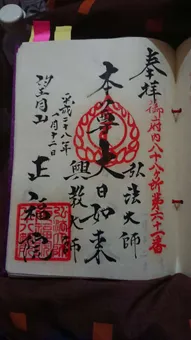 奉拝
御府内八十八ヶ所第六十一番
弘法大師
本尊大日如来
興教大師
平成二十八年
八月十二日
望月山
正福院